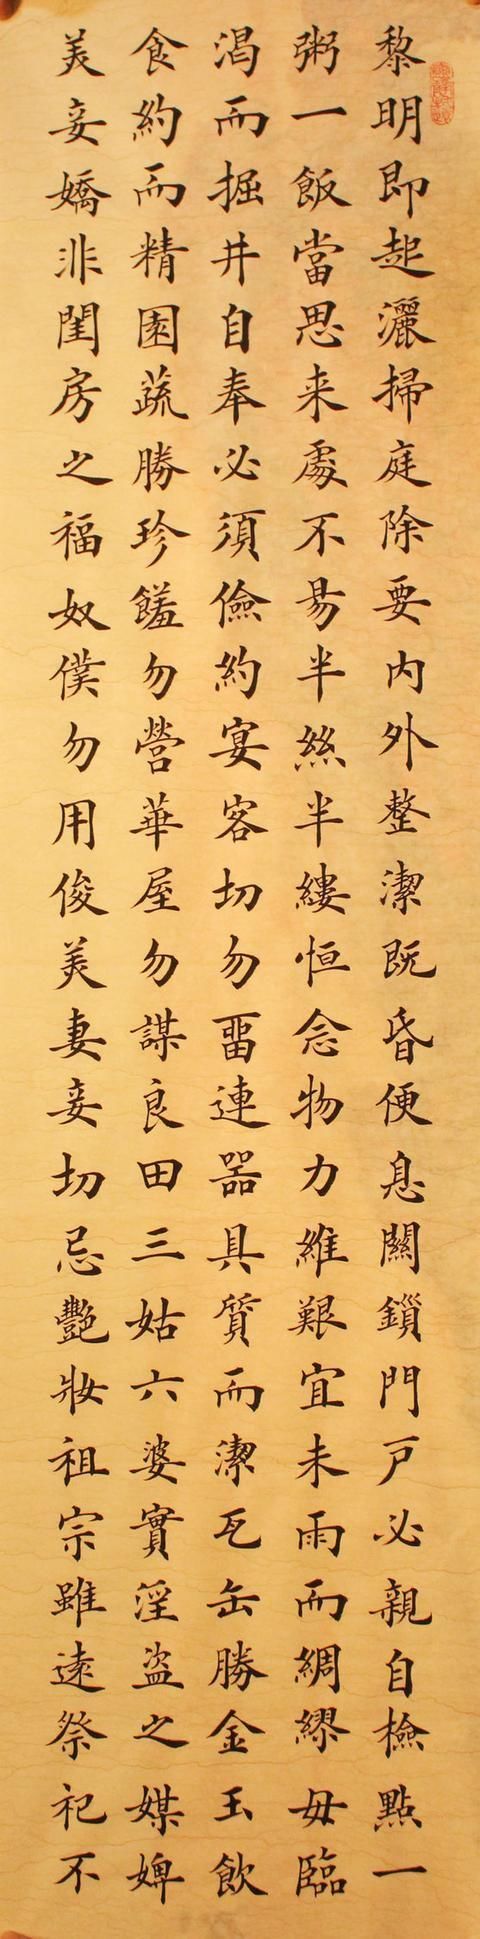 黎明即起灑掃庭除要内外整潔既昏便息關鎖門戶必親自檢點一
粥一飯當思来處不易半絲半縷恒念物力維艱宜未雨而綢繆毋臨
渴而掘井自奉必須儉約宴客切勿畱連器具質而潔瓦缶勝金玉飲
食約而精園蔬勝珍饈勿營華屋勿謀良田三姑六婆實淫盗之媒婢
美妾嬌非閨房之福奴僕勿用俊美妻妾切忌艷妝祖宗雖遠祭祀不